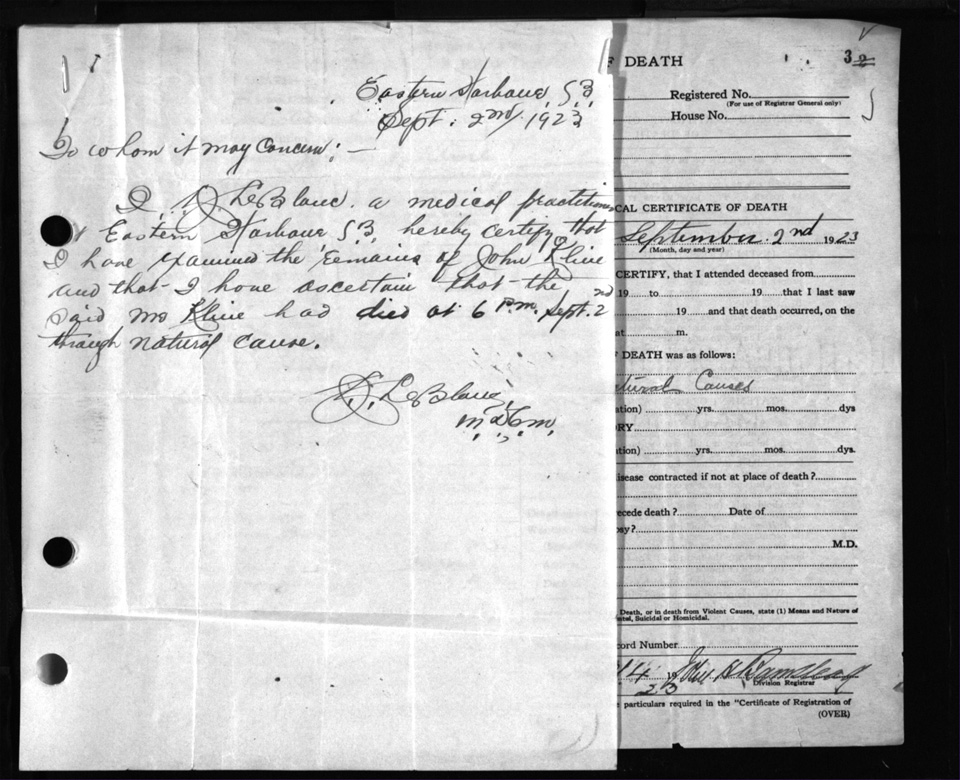 Eastern Harbour, C.B.
Sept. 2nd, 1923
To whom it may Concern: —
I, LeBlanc, a medical practitioner
Eastern Harbour C.B. hereby certify that
I have examined the remains of John Kline
and that I have ascertain that the
said Mr Kline had died at 6 P.m. Sept. 2nd
through natural cause.
LeBlanc,
M.D.C.M.
F DEATH
Registered No.
(For use of Registrar General only)
House No.
CAL CERTIFICATE OF DEATH
September 2nd 1923
(Month, day and year)
CERTIFY, that I attended deceased from
19 to 19 that I last saw
19 and that death occurred, on the
at m.
F DEATH was as follows:
tural Causes
ation) yrs. mos. dys
ORY
ation) yrs. mos. dys.
isease contracted if not at place of death?
ecede death? Date of
psy?
M.D.
Death, or in death from Violent Causes, state (1) Means and Nature of
ntal, Suicidal or Homicidal.
cord Number
4 19
23
Division Registrar
e particulars required in the "Certificate of Registration of
(OVER)